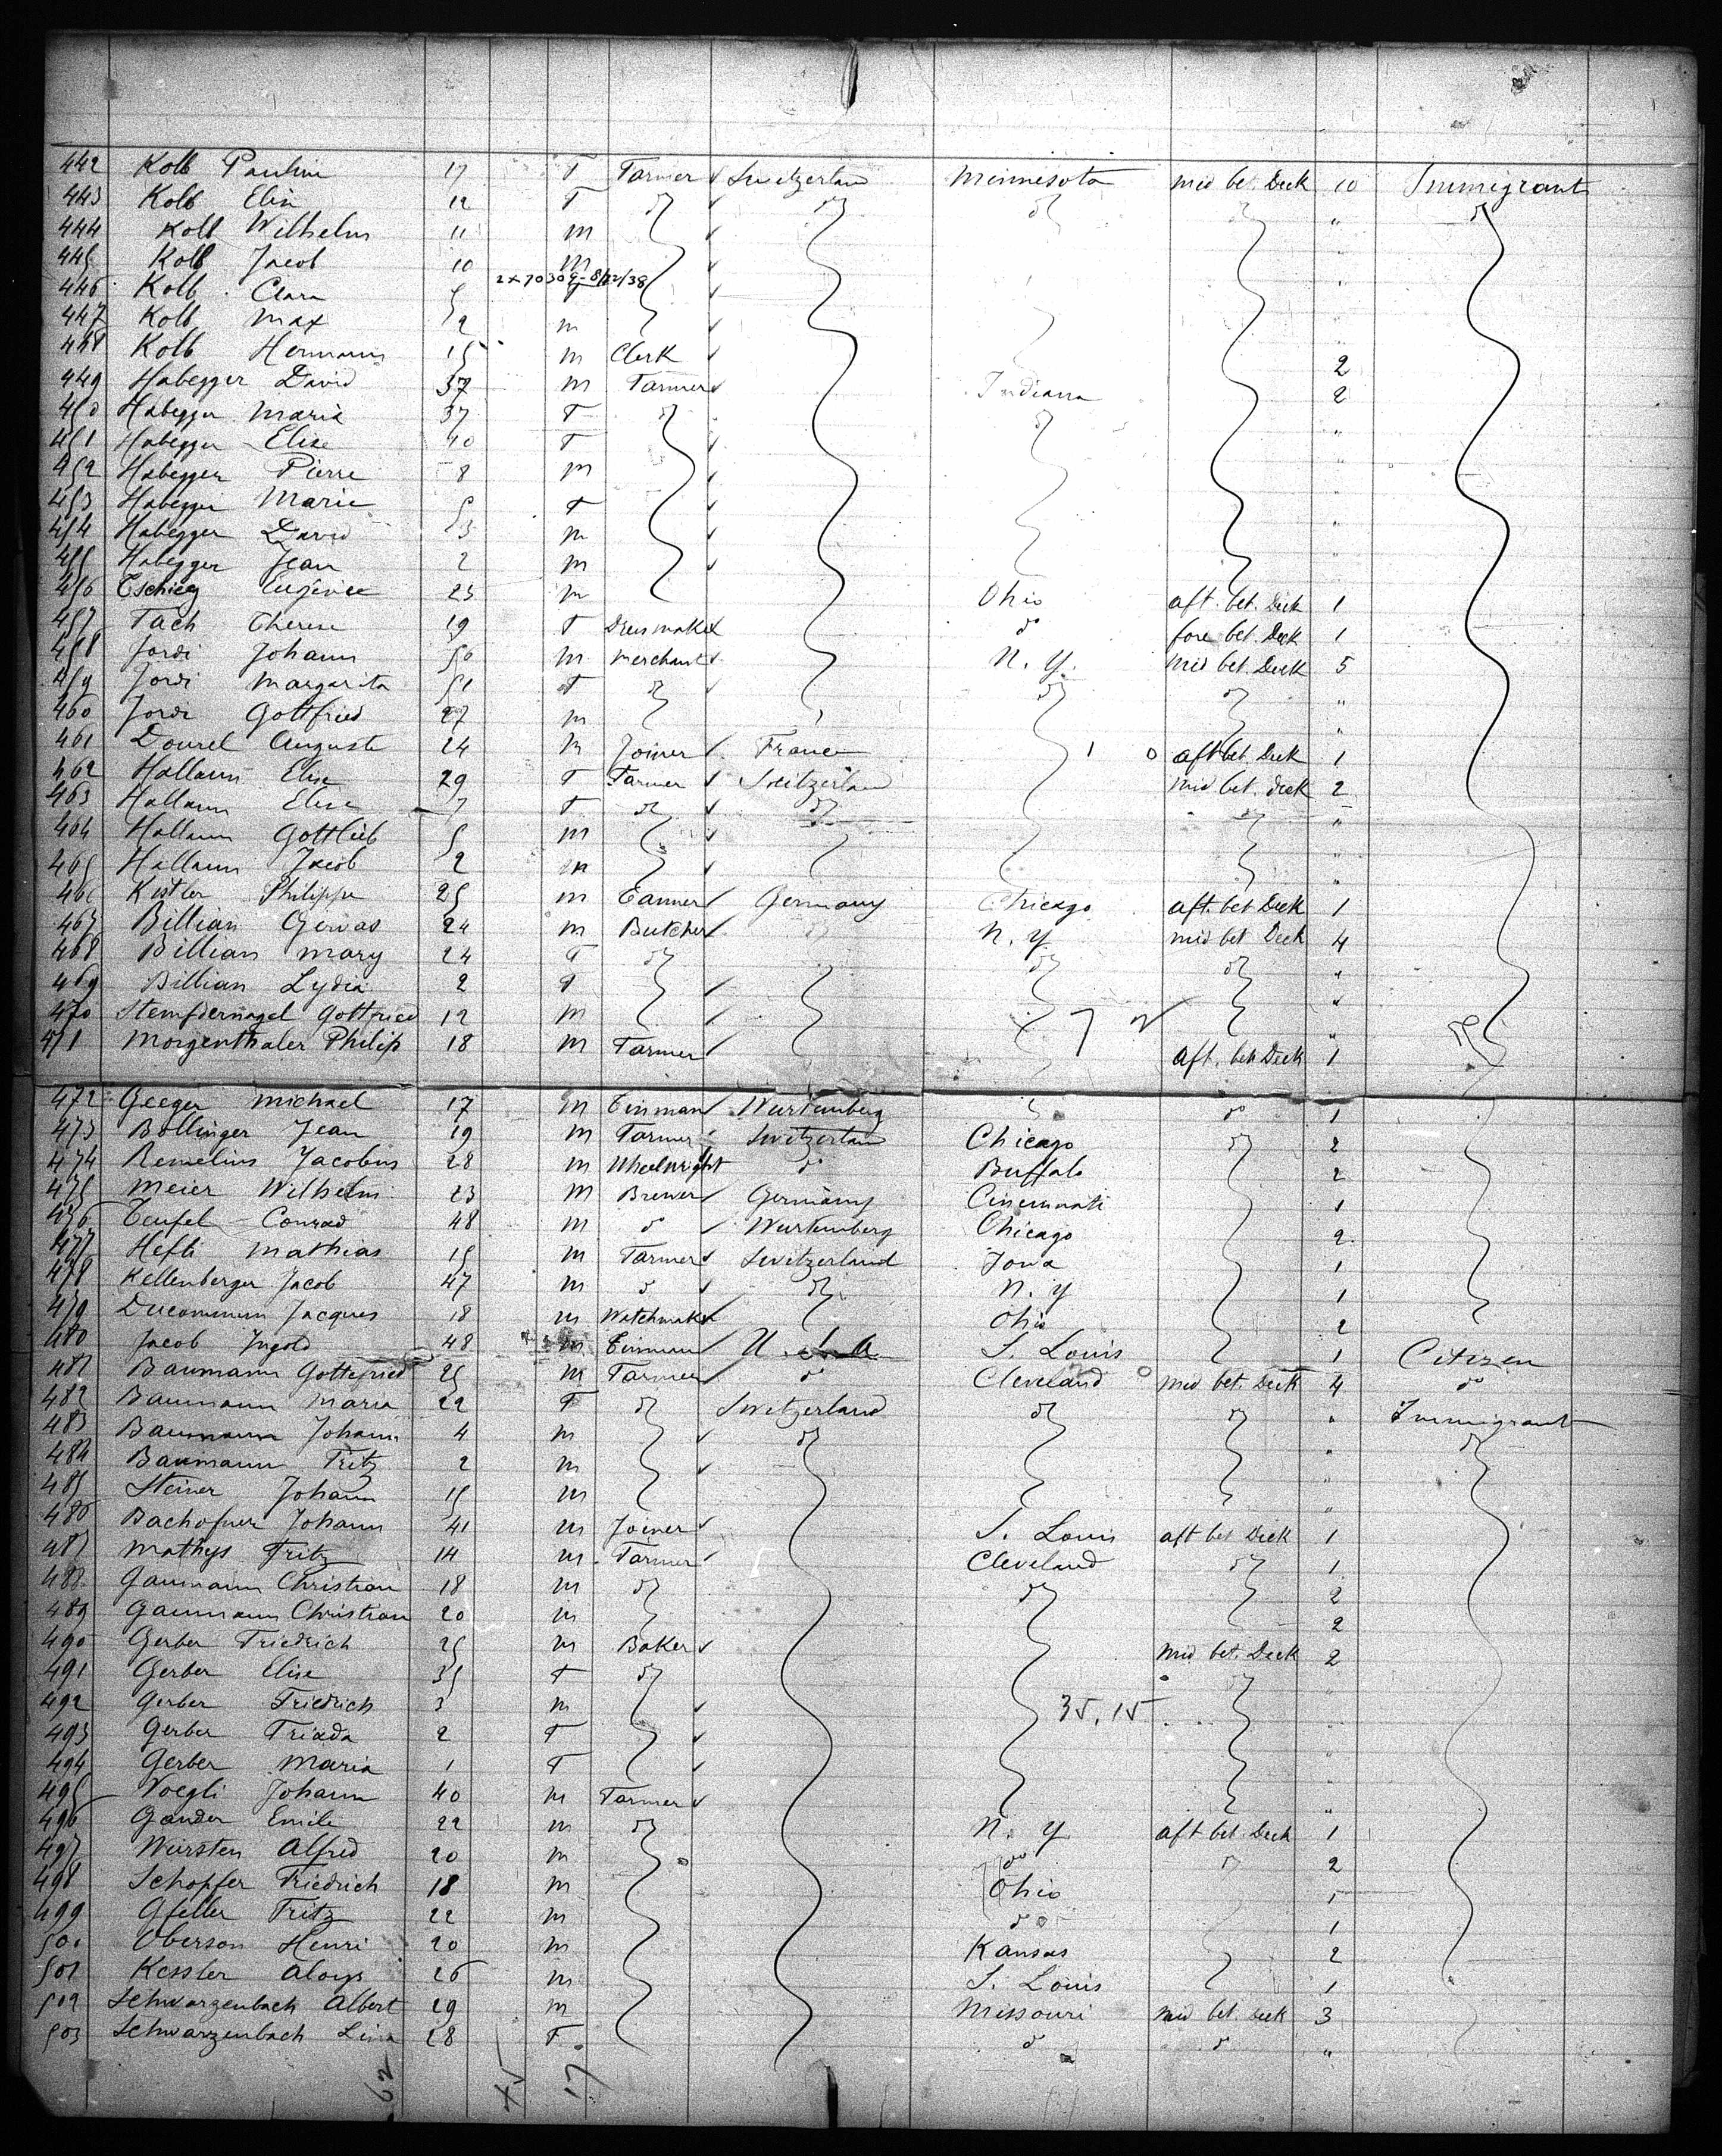 442 Kolb Pauline 17 F Farmer ✓ Switzerland Minnesota mid bet. Deck 10 Immigrant
443 Kolb Elin 12 F do ✓ do do do " do
444 Kolb Wilhelm 11 m ✓ "
445 Kolb Jacob 10 m ✓ "
446 Kolb Clara 5 ✓ "
2x70309-8/22/38
447 Kolb Max 2 m ✓ "
448 Kolb Hermann 15 m Clerk ✓ 2
449 Habegger David 37 m Farmer ✓ Indiana 2
450 Habegger Maria 37 F do do "
451 Habegger Elise 10 F ✓ "
452 Habegger Pierre 8 m ✓ "
453 Habegger Marie 5 F ✓ "
454 Habegger David 3 m ✓ "
455 Habegger Jean 2 m ✓ "
456 Tschieg Eugénie 23 m Ohio aft. bet. Deck 1
457 Fach Therese 19 F Dressmaker do fore bet. Deck 1
458 Jordi Johann 50 m merchant ✓ N. Y. mid bet. Deck 5
459 Jordi Margarita 51 F do ✓ do do "
460 Jordi Gottfried 27 m "
461 Dourel Auguste 24 m Joiner ✓ France 1 0 aft bet. Deck 1
462 Hallann Elise 29 F Farmer ✓ Switzerland mid bet. deck 2
463 Hallann Elise 7 F do ✓ do do "
464 Hallann Gottlieb 5 m ✓ "
465 Hallann Jacob 2 m ✓ "
466 Kistler Philippe 25 m Tanner ✓ Germany Chicago aft. bet Deck 1
467 Billian Gervas 24 m Butcher ✓ do N. Y. mid bet Deck 4
468 Billian Mary 24 F do do do "
469 Billian Lydia 2 F ✓ "
470 Gottfried 12 m ✓ "
471 Morgenthaler Philip 18 m Farmer ✓ aft. bet Deck 1
472 Geeger Michael 17 m Tinman ✓ Wurtemberg do 1
473 Bollinger Jean 19 m Farmer Switzerland Chicago do 2
474 Remelius Jacobus 28 m Wheelwright do Buffalo 2
475 Meier Wilhelm 23 m Brewer ✓ Germany Cincinnati 1
476 Teufel Conrad 48 m do ✓ Wurtemberg Chicago 2
477 Hefti Mathias 15 m Farmer ✓ Switzerland Iowa 1
478 Kellenberger Jacob 47 m do ✓ do N. Y 1
479 Ducommun Jacques 18 m Watchmaker ✓ Ohio 2
480 Jacob Ingold 48 m Tinman ✓ U. S. A S. Louis 1 Citizen
481 Baumann Gottfried 25 m Farmer ✓ do Cleveland 0 mid bet. Deck 4 do
482 Baumann Maria 22 F do Switzerland do do " Immigrant
483 Baumann Johann 4 m ✓ do " do
484 Baumann Fritz 2 m ✓ "
485 Steiner Johann 15 m "
486 Bachofner Johann 41 m Joiner ✓ S. Louis aft bet Deck 1
487 Mathys Fritz 14 m Farmer ✓ Cleveland do 1
488 Gaumann Christian 18 m do do 2
489 Gaumann Christian 20 m 2
490 Gerber Friedrich 25 m Baker ✓ mid bet. Deck 2
491 Gerber Elise 35 F do do "
492 Gerber Friedrich 3 m ✓ 35, 15 "
493 Gerber Frieda 2 F ✓ "
494 Gerber Maria 1 F ✓ "
495 Voegli Johann 40 m Farmer ✓ "
496 Gander Emile 22 m do N. Y aft bet. Deck 1
497 Wursten Alfred 20 m do do 2
498 Schopfer Friedrich 18 m Ohio 1
499 Gfeller Fritz 22 m do 1
500 Oberson Henri 20 m Kansas 2
501 Kessler Aloys 26 m S. Louis 1
502 Schwarzenbach Albert 29 m Missouri mid bet. Deck 3
503 Schwarzenbach Lina 28 F do do "
62 45 17